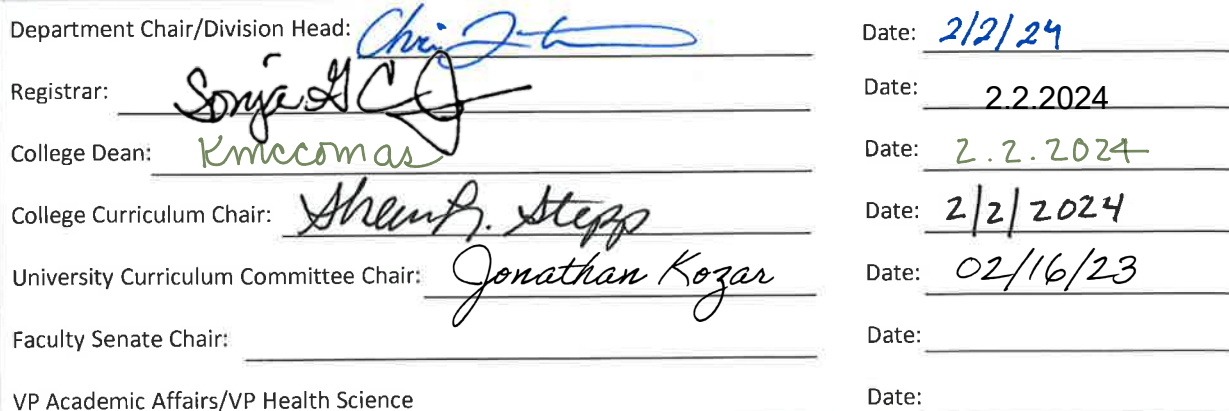 Department Chair/Division Head: Chris Date: 2/2/24
Registrar: Sonja G C Date: 2.2.2024
College Dean: Kmccomas Date: 2.2.2024
College Curriculum Chair: R. Stepp Date: 2/2/2024
University Curriculum Committee Chair: Jonathan Kozar Date: 02/16/23
Faculty Senate Chair: Date:
VP Academic Affairs/VP Health Science Date: